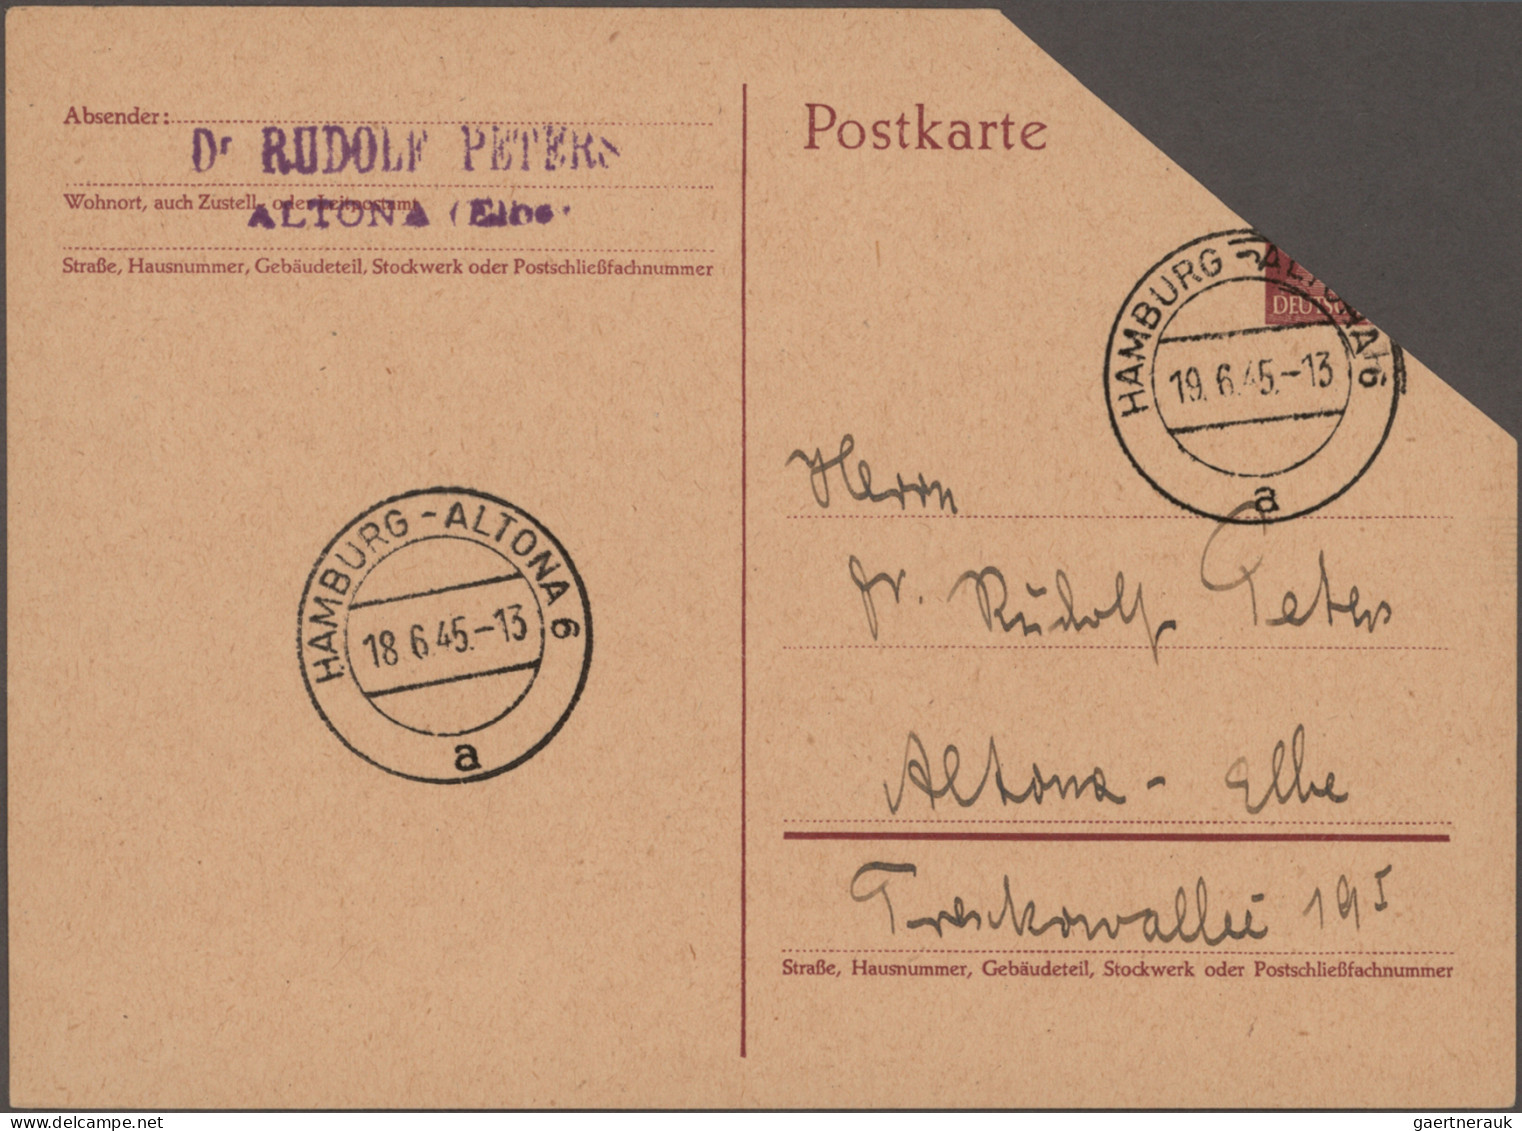 Absender:
Dr RUDOLF PETERS
Wohnort, auch Zustell- oder Leitpostamt
ALTONA (Elbe)
Straße, Hausnummer, Gebäudeteil, Stockwerk oder Postschließfachnummer
Postkarte
DEUTSC
HAMBURG-ALTONA 6
19.6.45.-13
a
HAMBURG-ALTONA 6
18.6.45.-13
a
Herrn
Dr. Rudolf Peters
Altona-Elbe
Treskowallee 195
Straße, Hausnummer, Gebäudeteil, Stockwerk oder Postschließfachnummer
gaertnerauk